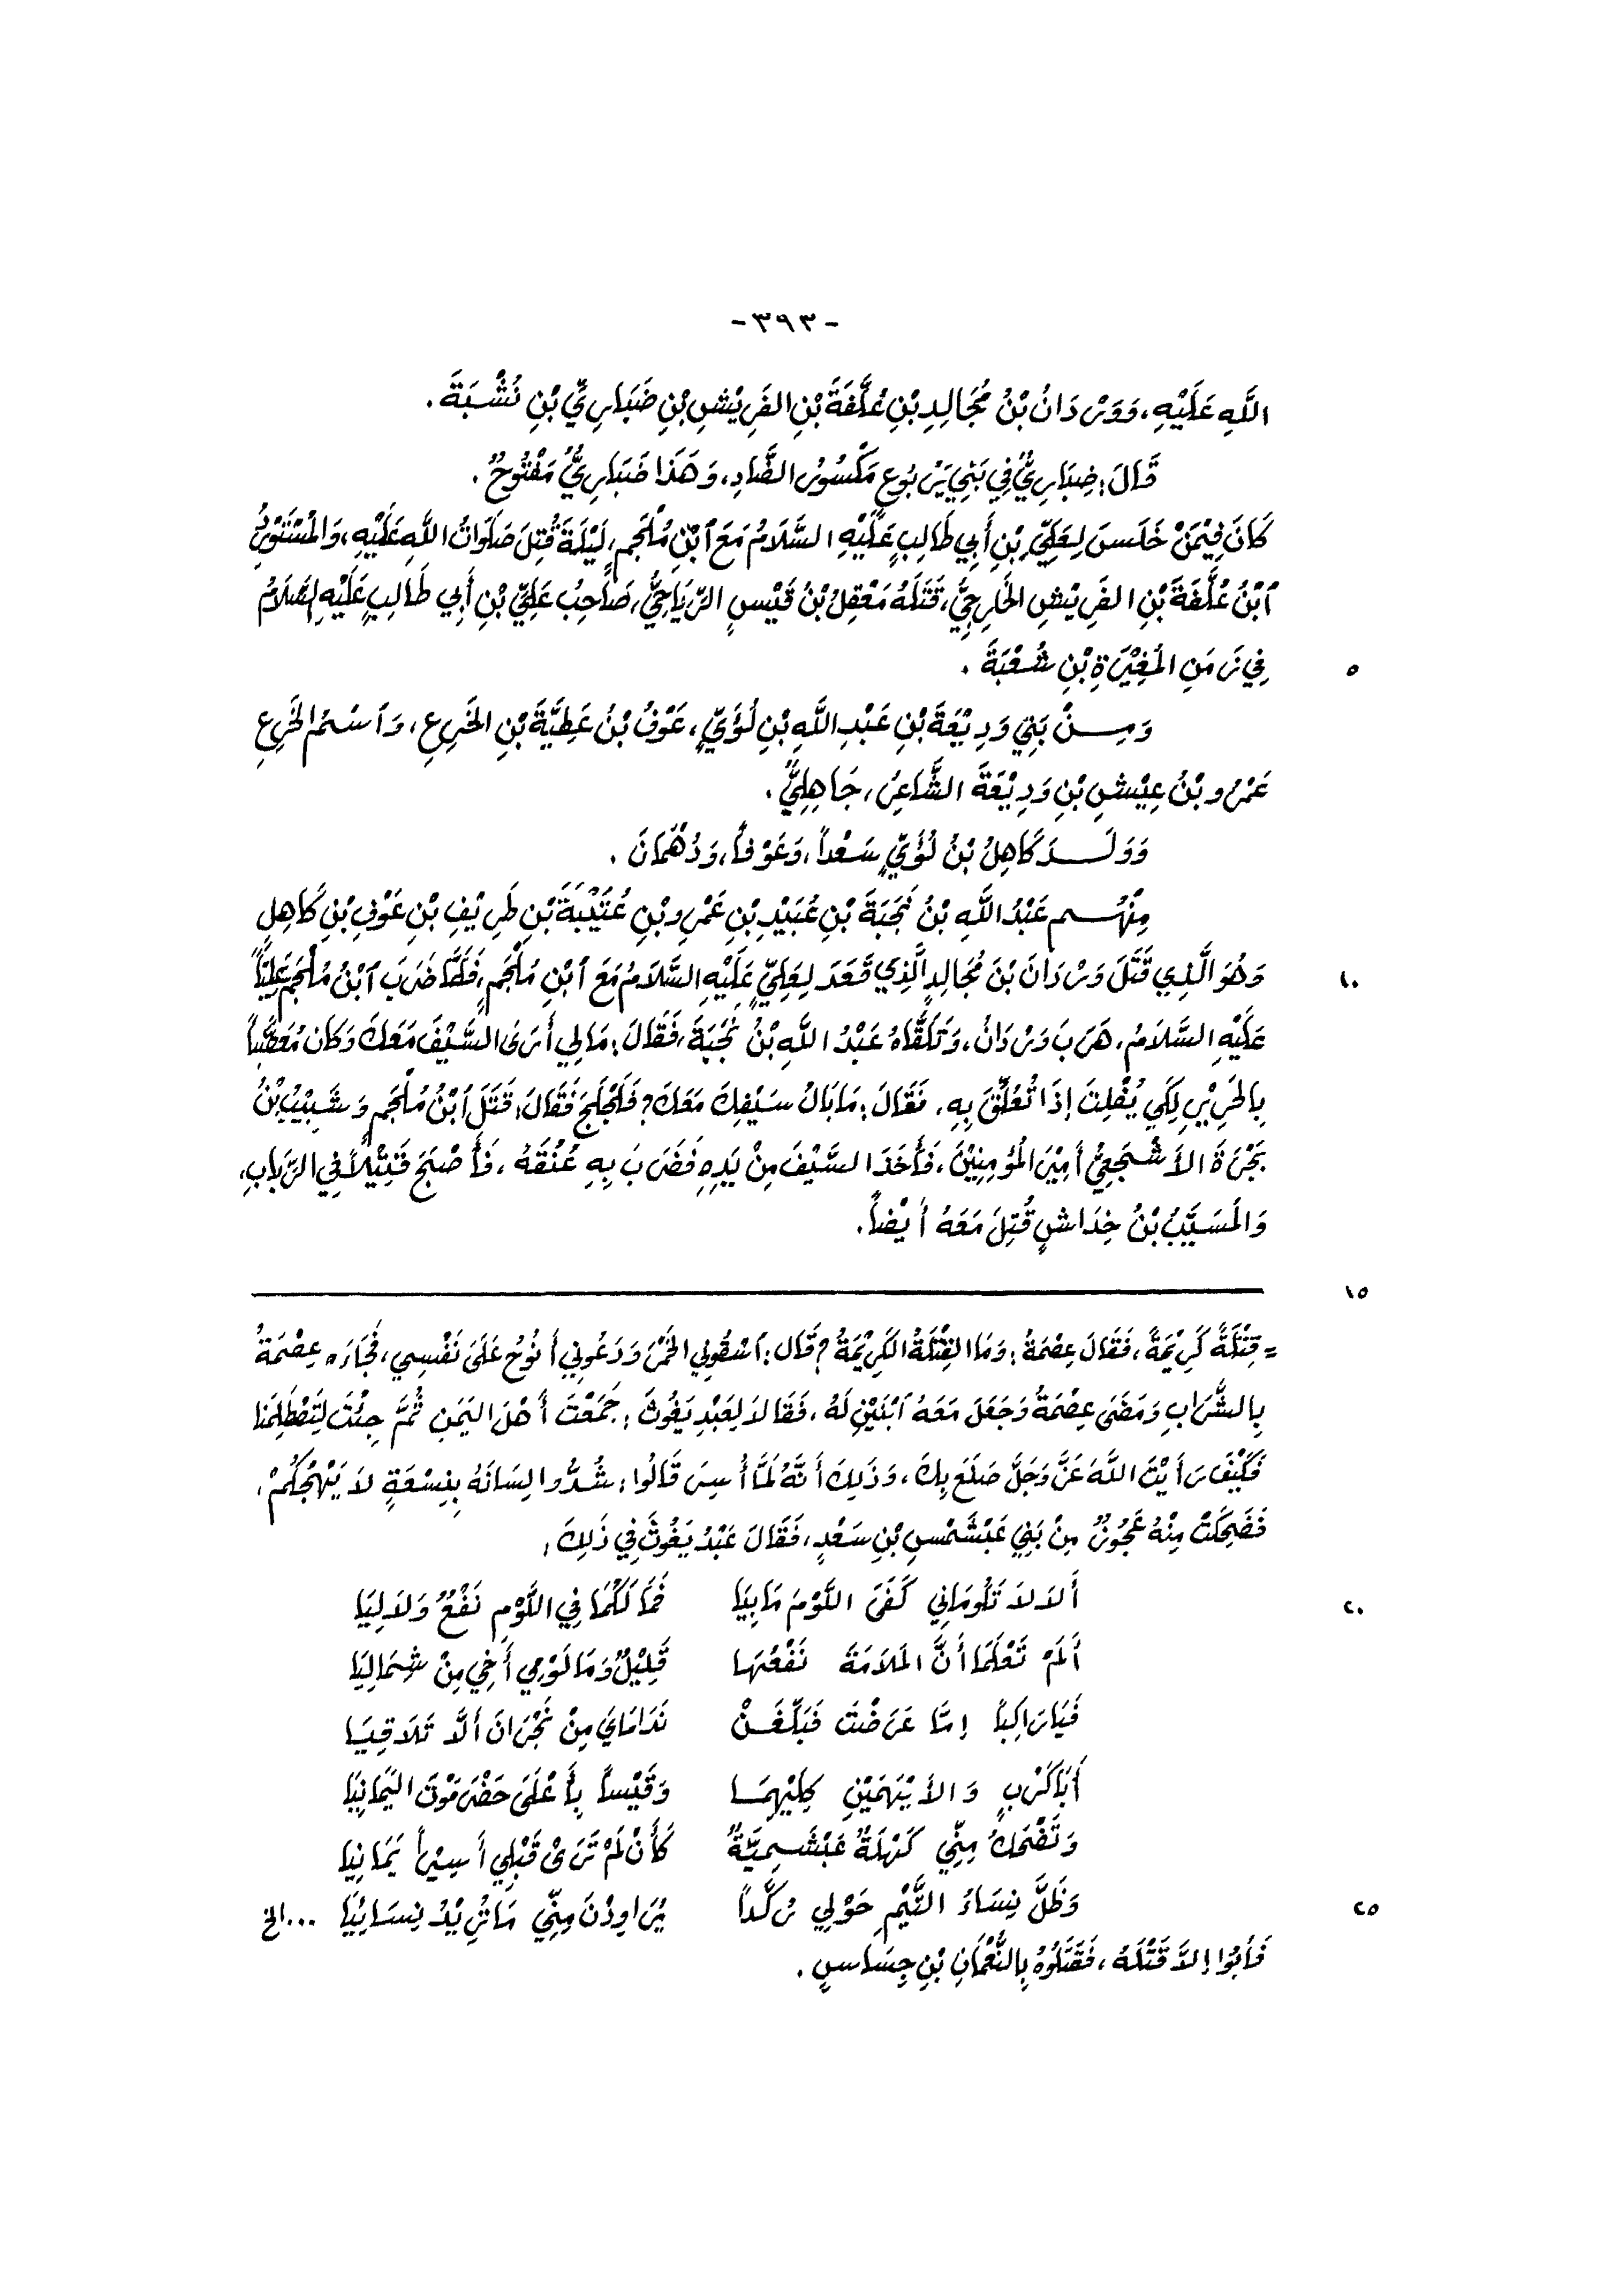 -٣٩٣-
اللَّهِ عَلَيْهِ، وَوَرْدَانُ بْنُ مُجَالِدِ بْنِ عُلَّفَةَ بْنِ الفَرِيْشِ بْنِ ضَبَارِيِّ بْنِ نُشْبَةَ .
قَالَ: ضِبَارِيُّ فِي بَنِي يَرْبُوعٍ مَكْسُورُ الضَّادِ، وَهَذَا ضَبَارِيُّ مَفْتُوحٌ .
كَانَ فِيْمَنْ جَلَسَ لِعَلِيِّ بْنِ أَبِي طَالِبٍ عَلَيْهِ السَّلَامُ مَعَ ٱبْنِ مُلْجَمٍ، لَيْلَةَ قُتِلَ صَلَوَاتُ اللَّهِ عَلَيْهِ، وَالْمُسْتَوْرِدُ
ٱبْنُ عُلَّفَةَ بْنِ الفَرِيْشِ الخَارِجِيُّ، قَتَلَهُ مَعْقِلُ بْنُ قَيْسٍ الرِّيَاحِيُّ، صَاحِبُ عَلِيِّ بْنِ أَبِي طَالِبٍ عَلَيْهِ السَّلَامُ
٥ فِي زَمَنِ المُغِيْرَةِ بْنِ شُعْبَةَ .
وَمِـنْ بَنِي وَدِيْعَةَ بْنِ عَبْدِ اللَّهِ بْنِ لُؤَيٍّ، عَوْفُ بْنُ عَطِيَّةَ بْنِ الخَرِعِ، وَٱسْمُ الخَرِعِ
عَمْرُو بْنُ عِيْشِ بْنِ وَدِيْعَةَ الشَّاعِرُ، جَاهِلِيٌّ .
وَوَلَـدَ كَاهِلُ بْنُ لُؤَيٍّ سَعْداً، وَعَوْفاً، وَدُهْمَانَ .
مِنْهُـم عَبْدُ اللَّهِ بْنُ نَجَبَةَ بْنِ عُبَيْدِ بْنِ عَمْرِو بْنِ عُتَيْبَةَ بْنِ طَرِيْفِ بْنِ عَوْفِ بْنِ كَاهِلِ
١٠ وَهُوَ الَّذِي قَتَلَ وَرْدَانَ بْنَ مُجَالِدٍ الَّذِي قَعَدَ لِعَلِيٍّ عَلَيْهِ السَّلَامُ مَعَ ٱبْنِ مُلْجَمٍ، فَلَمَّا ضَرَبَ ٱبْنُ مُلْجَمٍ عَلِيّاً
عَلَيْهِ السَّلَامُ، هَرَبَ وَرْدَانُ، وَتَلَقَّاهُ عَبْدُ اللَّهِ بْنُ نَجَبَةَ، فَقَالَ: مَالِي أَرَى السَّيْفَ مَعَكَ وَكَانَ مُعَصَّباً
بِالحَرِيْرِ لِكَي يُفْلِتَ إِذَا تُعُلِّقَ بِهِ، فَقَالَ: مَا بَالُ سَيْفِكَ مَعَكَ؟ فَلَجْلَجَ فَقَالَ: قَتَلَ ٱبْنُ مُلْجَمٍ وَشَبِيْبُ بْنُ
بَجْرَةَ الأَشْجَعِيُّ أَمِيْرَ المُؤْمِنِيْنَ، فَأَخَذَ السَّيْفَ مِنْ يَدِهِ فَضَرَبَ بِهِ عُنُقَهُ، فَأَصْبَحَ قَتِيْلاً فِي الرِّبَابِ،
وَالمُسَيَّبُ بْنُ خِدَاشٍ قُتِلَ مَعَهُ أَيْضاً.
١٥
= قِتْلَةً كَرِيْمَةً، فَقَالَ عِصْمَةُ: وَمَا القِتْلَةُ الكَرِيْمَةُ؟ قَالَ: ٱسْقُونِي الخَمْرَ وَدَعُونِي أَنُوحُ عَلَى نَفْسِي، فَجَاءَه عِصْمَةُ
بِالشَّرَابِ وَمَضَى عِصْمَةُ وَجَعَلَ مَعَهُ ٱبْنَيْنِ لَهُ، فَقَالَا لِعَبْدِ يَغُوثَ: جَمَعْتَ أَهْلَ اليَمَنِ ثُمَّ جِئْتَ لِتَصْطَلِمَنَا
فَكَيْفَ رَأَيْتَ اللَّهَ عَزَّ وَجَلَّ صَنَعَ بِكَ، وَذَلِكَ أَنَّهُ لَمَّا أُسِرَ قَالُوا: شُدُّوا لِسَانَهُ بِنِسْعَةٍ لاَ يَهْجُكُمْ،
فَضَحِكَتْ مِنْهُ عَجُوزٌ مِنْ بَنِي عَبْشَمْسِ بْنِ سَعْدٍ، فَقَالَ عَبْدُ يَغُوثَ فِي ذَلِكَ:
٢٠ أَلَا لَا تَلُومَانِي كَفَى اللَّوْمَ مَا بِيَا فَمَا لَكُمَا فِي اللَّوْمِ نَفْعٌ وَلَا لِيَا
أَلَمْ تَعْلَمَا أَنَّ المَلَامَةَ نَفْعُهَا قَلِيْلٌ وَمَا لَوْمِي أَخِي مِنْ شِمَالِيَا
فَيَا رَاكِباً إِمَّا عَرَضْتَ فَبَلِّغَـنْ نَدَامَايَ مِنْ نَجْرَانَ أَلَّا تَلَاقِيَـا
أَبَا كَرْبٍ وَالأَيْهَمَيْنِ كِلَيْهِمَـا وَقَيْساً بِأَعْلَى حَضْرَمَوْتَ اليَمَانِيَا
وَتَضْحَكُ مِنِّي كَهْلَةٌ عَبْشَـمِيَّةٌ كَأَنْ لَمْ تَرَى قَبْلِي أَسِيْراً يَمَانِيا
٢٥ وَظَلَّ نِسَاءُ التَّيْمِ حَوْلِي رُكَّداً يُرَاوِدْنَ مِنِّي مَا تُرِيْدُ نِسَائِيَا ...الخ
فَأَبَوْا إِلاَّ قَتْلَهُ، فَقَتَلُوهُ بِالنُّعْمَانِ بْنِ جِسَاسٍ .